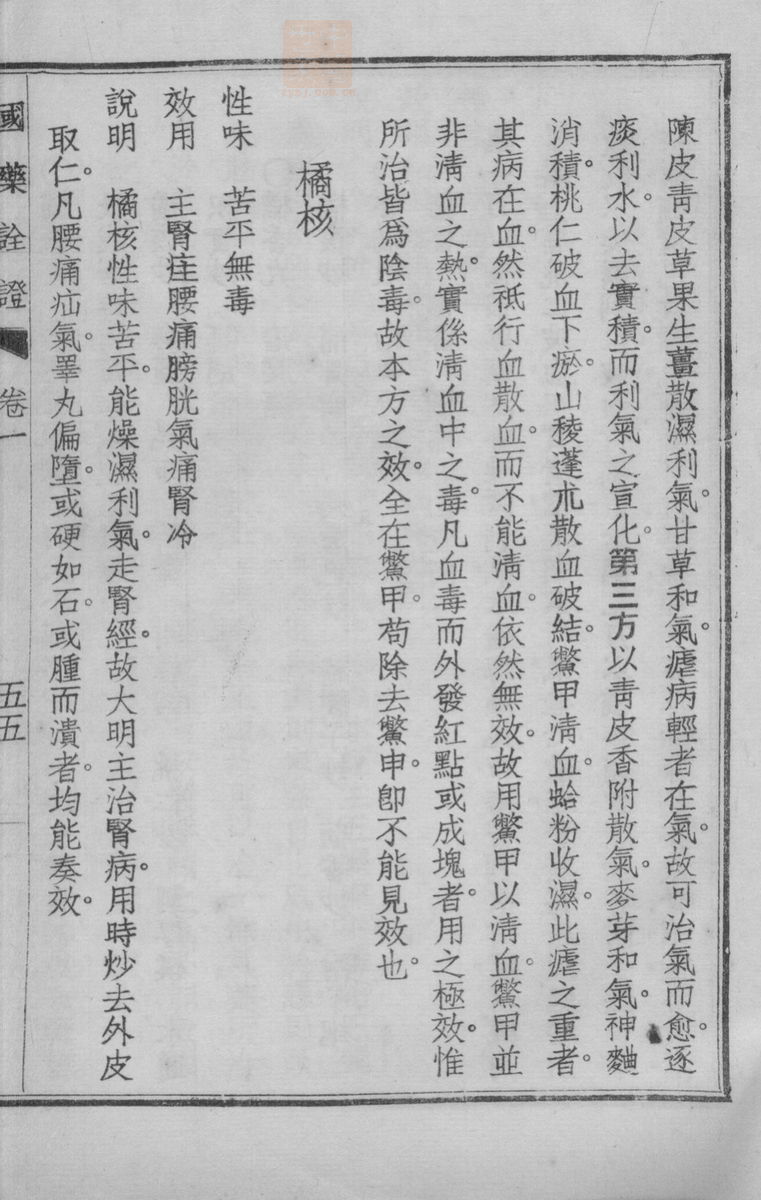 陳皮靑皮草果生薑散濕利氣。甘草和氣。瘧病輕者在氣。故可治氣而愈。逐
痰利水。以去實積。而利氣之宣化。第三方以靑皮香附散氣。麥芽和氣。神麯
消積。桃仁破血下瘀。山稜蓬朮散血破結。鱉甲淸血。蛤粉收濕。此瘧之重者。
其病在血。然祗行血散血。而不能淸血。依然無效。故用鱉甲以淸血。鱉甲並
非淸血之熱。實係淸血中之毒。凡血毒而外發紅點或成塊者。用之極效。惟
所治皆爲陰毒。故本方之效。全在鱉甲。苟除去鱉申。卽不能見效也。
橘核
性味　苦平無毒
效用　主腎疰腰痛膀胱氣痛腎冷
說明　橘核性味苦平。能燥濕利氣。走腎經。故大明主治腎病。用時炒去外皮
取仁。凡腰痛疝氣。睪丸偏墮。或硬如石。或腫而潰者。均能奏效。
國藥詮證　卷一　五五